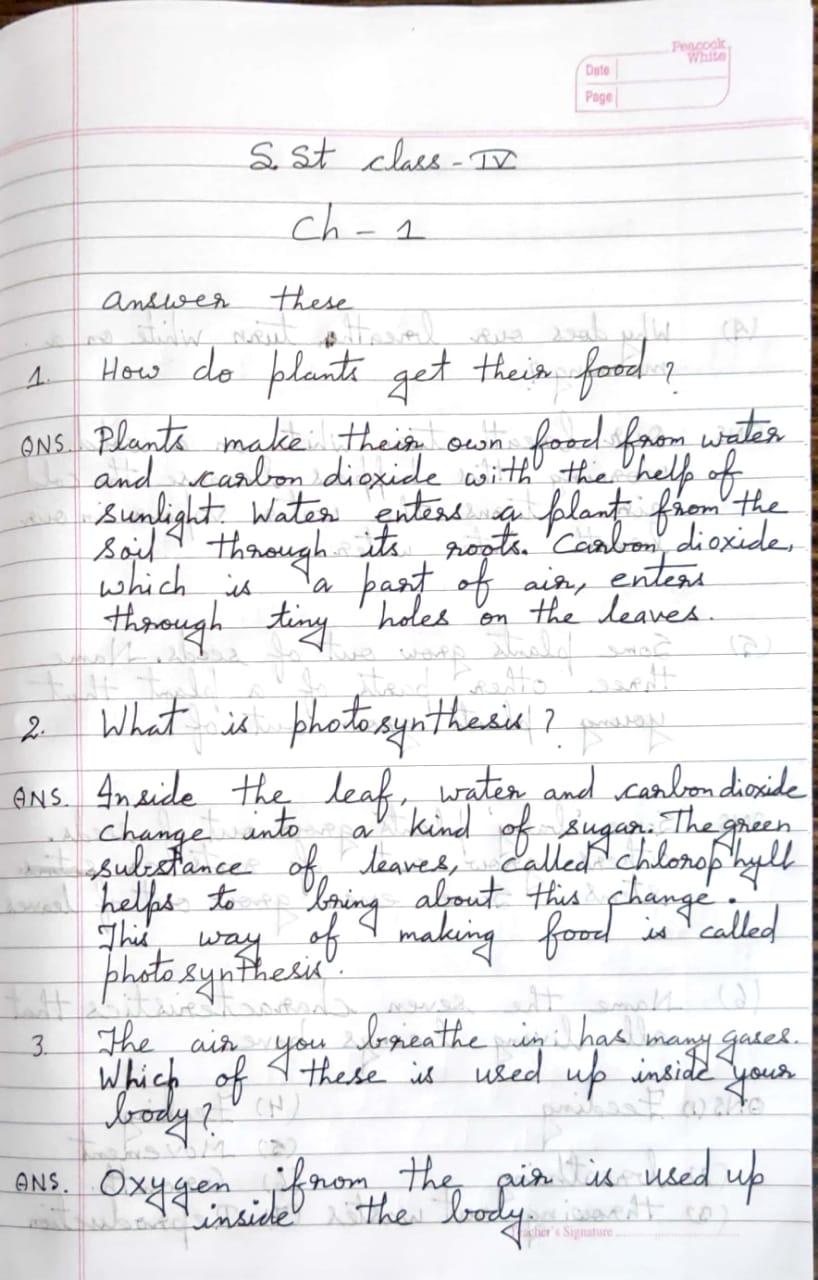 Peacock
White
Date
Page
S.St class - IV
Ch - 1
answer these
1. How do plants get their food?
ANS. Plants make their own food from water
and carbon dioxide with the help of
sunlight. Water enters a plant from the
soil through its roots. Carbon dioxide,
which is a part of air, enters
through tiny holes on the leaves.
2. What is photosynthesis?
ANS. Inside the leaf, water and carbon dioxide
change into a kind of sugar. The green
substance of leaves, called chlorophyll
helps to bring about this change.
This way of making food is called
photosynthesis.
3. The air you breathe in has many gases.
Which of these is used up inside your
body?
ANS. Oxygen from the air is used up
inside the body.
Teacher's Signature